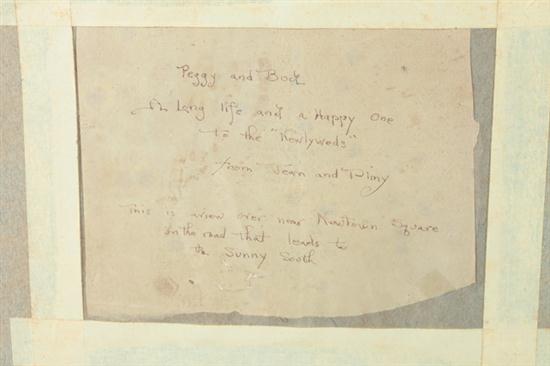 Peggy and Bock
A Long life and a Happy One
To the "Newlyweds"
from Jean and Jimy
This is a view over near Newtown Square
on the road that leads to
the Sunny South